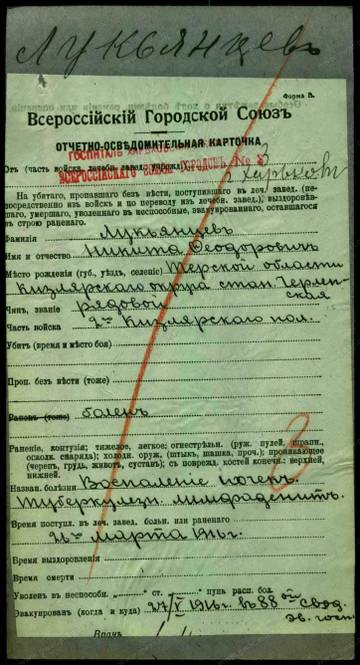 Лукьянцевъ
Форма В.
Всероссійскій Городской Союзъ
ОТЧЕТНО-ОСВѢДОМИТЕЛЬНАЯ КАРТОЧКА
ГОСПИТАЛЬ
Отъ (часть войска, лечебн. завед., учрежд.) № 3
ВСЕРОССІЙСКАГО СОЮЗА ГОРОДОВЪ Харьковъ
На убитаго, пропавшаго безъ вѣсти, поступившаго въ леч. завед. (не-
посредственно изъ войскъ и по переводу изъ лечебн. завед.), выздоровѣв-
шаго, умершаго, уволеннаго въ неспособные, эвакуированнаго, оставшагося
въ строю раненаго.
Фамилія Лукьянцевъ
Имя и отчество Никита Ѳеодоровичъ
Мѣсто рожденія (губ., уѣздъ, селеніе) Терской области
Кизлярскаго округа стан.
ская
Чинъ, званіе рядовой
Часть войска 2го Кизлярскаго пол.
Убитъ (время и мѣсто боя)
Проп. безъ вѣсти (тоже)
Раненъ (тоже) боленъ
Раненіе, контузія; тяжелое, легкое; огнестрѣльн. (руж. пулей, шрапн.,
осколк. снаряда); холодн. оруж. (штыкъ, шашка, проч.); проникающее
(черепъ, грудь, животъ, суставъ); съ поврежд. костей конечн.: верхней,
нижней.
Назван. болѣзни Воспаленіе
Туберкулезн. лимфаденитъ.
Время поступл. въ леч. завед. больн. или раненаго
26го марта 1916 г.
Время выздоровленія
Время смерти
Уволенъ въ неспособн. ст. пунк. расп. бол.
Эвакуированъ (когда и куда) 27/V 1916 г. въ 88ой свод.
эв. госп.
Врачъ